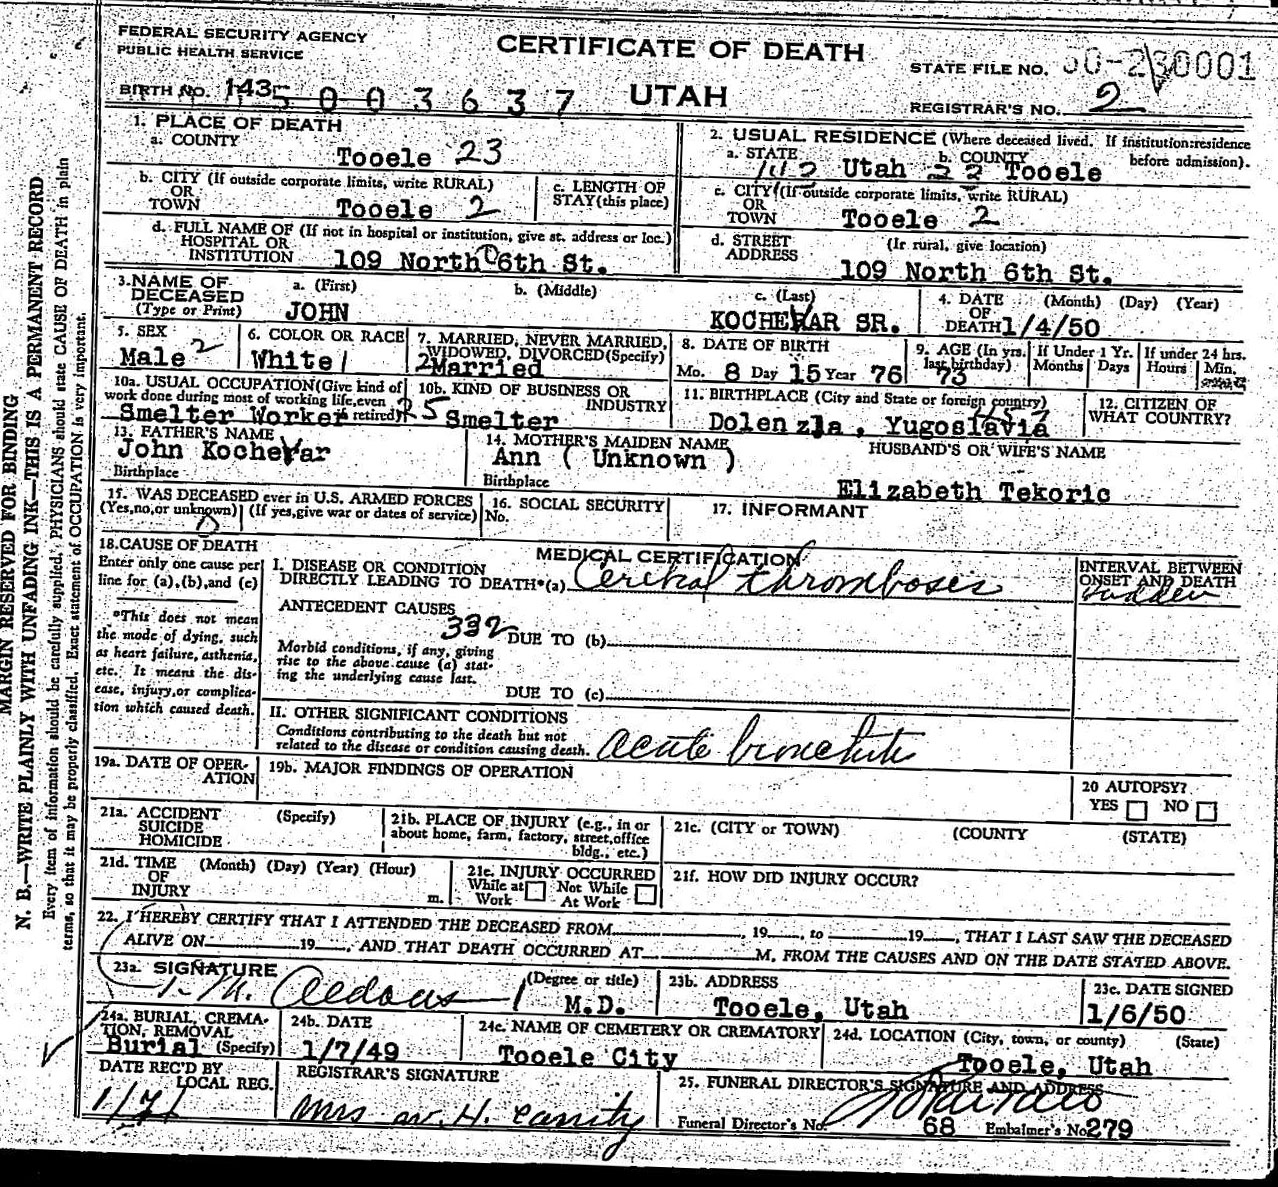 FEDERAL SECURITY AGENCY
PUBLIC HEALTH SERVICE
CERTIFICATE OF DEATH
STATE FILE NO. 50-230001
BIRTH NO. 143 5003637
UTAH
REGISTRAR'S NO. 2
1. PLACE OF DEATH
a. COUNTY
Tooele 23
2. USUAL RESIDENCE (Where deceased lived. If institution:residence before admission).
a. STATE Utah b. COUNTY Tooele
b. CITY (If outside corporate limits, write RURAL)
OR
TOWN Tooele 2
c. LENGTH OF
STAY (this place)
c. CITY (If outside corporate limits, write RURAL)
OR
TOWN Tooele 2
d. FULL NAME OF (If not in hospital or institution, give st. address or loc.)
HOSPITAL OR
INSTITUTION 109 North 6th St.
d. STREET (If rural, give location)
ADDRESS 109 North 6th St.
3. NAME OF
DECEASED
(Type or Print)
a. (First) JOHN
b. (Middle)
c. (Last) KOCHEVAR SR.
4. DATE (Month) (Day) (Year)
OF
DEATH 1/4/50
5. SEX
Male 2
6. COLOR OR RACE
White 1
7. MARRIED, NEVER MARRIED,
WIDOWED, DIVORCED (Specify)
2 Married
8. DATE OF BIRTH
Mo. 8 Day 15 Year 76
9. AGE (In yrs.
last birthday)
73
If Under 1 Yr.
Months Days
If under 24 hrs.
Hours Min.
10a. USUAL OCCUPATION (Give kind of
work done during most of working life, even
Smelter Worker retired) 25
10b. KIND OF BUSINESS OR
INDUSTRY
Smelter
11. BIRTHPLACE (City and State or foreign country)
Dolenzla, Yugoslavia
12. CITIZEN OF
WHAT COUNTRY?
13. FATHER'S NAME
John Kochevar
Birthplace
14. MOTHER'S MAIDEN NAME
Ann ( Unknown )
Birthplace
HUSBAND'S OR WIFE'S NAME
Elizabeth Tekoric
15. WAS DECEASED ever in U.S. ARMED FORCES
(Yes, no, or unknown) (If yes, give war or dates of service)
0
16. SOCIAL SECURITY
No.
17. INFORMANT
18. CAUSE OF DEATH
Enter only one cause per
line for (a), (b), and (c)
*This does not mean
the mode of dying, such
as heart failure, asthenia,
etc. It means the dis-
ease, injury, or complica-
tion which caused death.
MEDICAL CERTIFICATION
I. DISEASE OR CONDITION
DIRECTLY LEADING TO DEATH* (a) Cerebral thromboses
INTERVAL BETWEEN
ONSET AND DEATH
sudden
ANTECEDENT CAUSES
332
DUE TO (b)
Morbid conditions, if any, giving
rise to the above cause (a) stat-
ing the underlying cause last.
DUE TO (c)
II. OTHER SIGNIFICANT CONDITIONS
Conditions contributing to the death but not
related to the disease or condition causing death.
acute bronchitis
19a. DATE OF OPER-
ATION
19b. MAJOR FINDINGS OF OPERATION
20 AUTOPSY?
YES NO
21a. ACCIDENT (Specify)
SUICIDE
HOMICIDE
21b. PLACE OF INJURY (e.g., in or
about home, farm, factory, street, office
bldg., etc.)
21c. (CITY or TOWN) (COUNTY (STATE)
21d. TIME (Month) (Day) (Year) (Hour)
OF
INJURY m.
21e. INJURY OCCURRED
While at Work Not While At Work
21f. HOW DID INJURY OCCUR?
22. I HEREBY CERTIFY THAT I ATTENDED THE DECEASED FROM , 19 , to 19 , THAT I LAST SAW THE DECEASED
ALIVE ON 19 , AND THAT DEATH OCCURRED AT M, FROM THE CAUSES AND ON THE DATE STATED ABOVE.
23a. SIGNATURE (Degree or title)
Aldous M.D.
23b. ADDRESS
Tooele, Utah
23c. DATE SIGNED
1/6/50
24a. BURIAL, CREMA-
TION, REMOVAL
Burial (Specify)
24b. DATE
1/7/49
24c. NAME OF CEMETERY OR CREMATORY
Tooele City
24d. LOCATION (City, town, or county) (State)
Tooele, Utah
DATE REC'D BY
LOCAL REG.
REGISTRAR'S SIGNATURE
Mrs W. H. Cassity
25. FUNERAL DIRECTOR'S SIGNATURE AND ADDRESS
Funeral Director's No. 68 Embalmer's No. 279
MARGIN RESERVED FOR BINDING
N. B.—WRITE PLAINLY WITH UNFADING INK—THIS IS A PERMANENT RECORD
Every item of information should be carefully supplied. PHYSICIANS should state CAUSE OF DEATH in plain
terms, so that it may be properly classified. Exact statement of OCCUPATION is very important.